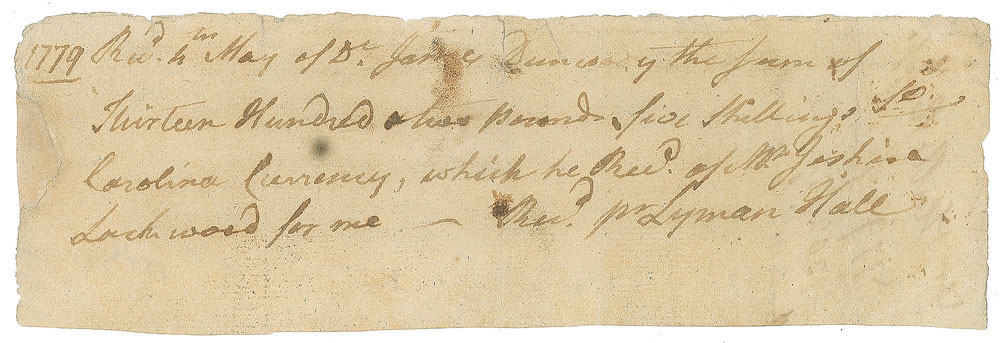 1779 Rec'd. 4th May of Dr. James Dunwody the Sum of
Thirteen Hundred & two pounds five Shillings So.
Carolina Currency, which he Rec'd. of Mr. Joshua
Lockwood for me — Rec'd pr Lyman Hall